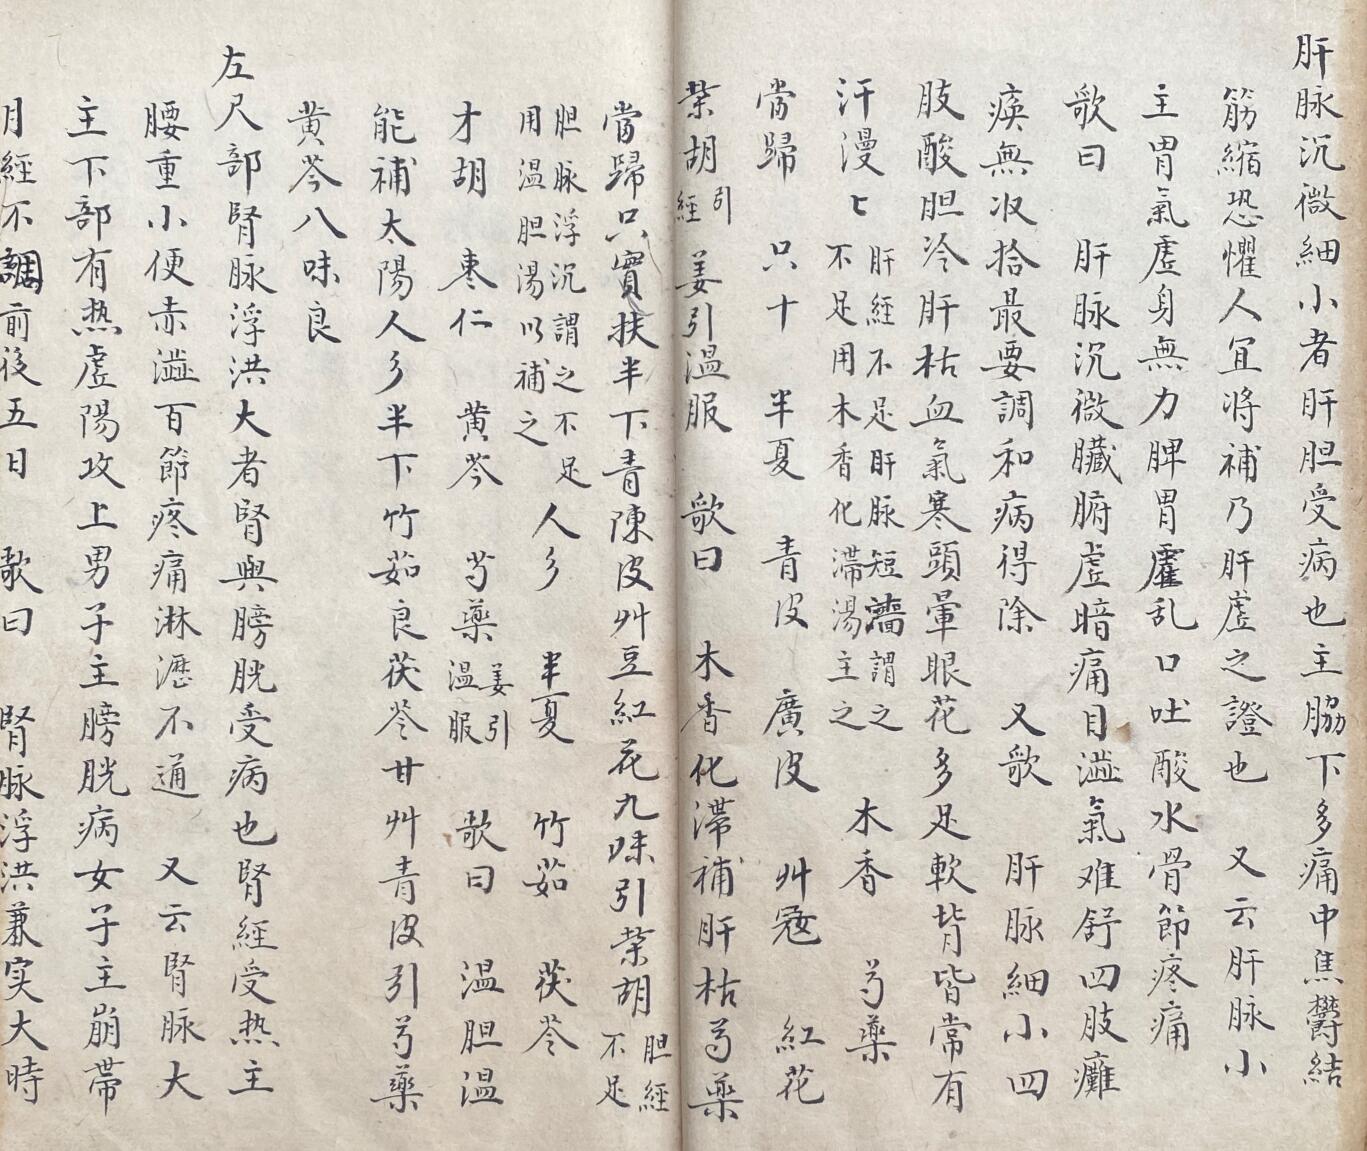 肝脉沉微細小者肝胆受病也主脇下多痛中焦欝結
筋縮恐懼人宜將補乃肝虛之證也　又云肝脉小
主胃氣虛身無力脾胃霍乱口吐酸水骨節疼痛
歌曰　肝脉沉微臟腑虛暗痛目澁氣难舒四肢癱
瘓無収拾最要調和病得除　又歌　肝脉細小四
肢酸胆冷肝枯血氣寒頭暈眼花多足軟背皆常有
汗漫ヒ　肝經不足肝脉短濇謂之
不足用木香化滞湯主之　木香　芍藥
當歸　只十　半夏　青皮　廣皮　艸蔻　紅花
柴胡　引經　姜引溫服　歌曰　木香化滞補肝枯芍藥
當歸只實扶半下青陳皮艸豆紅花九味引柴胡　胆經不足
胆脉浮沉謂之不足
用溫胆湯以補之　人乡　半夏　竹茹　茯苓
才胡　棗仁　黄芩　芍藥　姜引溫服　歌曰　溫胆溫
能補太陽人乡半下竹茹良茯苓甘艸青皮引芍藥
黄芩八味良
左尺部腎脉浮洪大者腎與膀胱受病也腎經受热主
腰重小便赤澁百節疼痛淋瀝不通　又云腎脉大
主下部有热虛陽攻上男子主膀胱病女子主崩帶
月經不調前後五日　歌曰　腎脉浮洪兼实大時